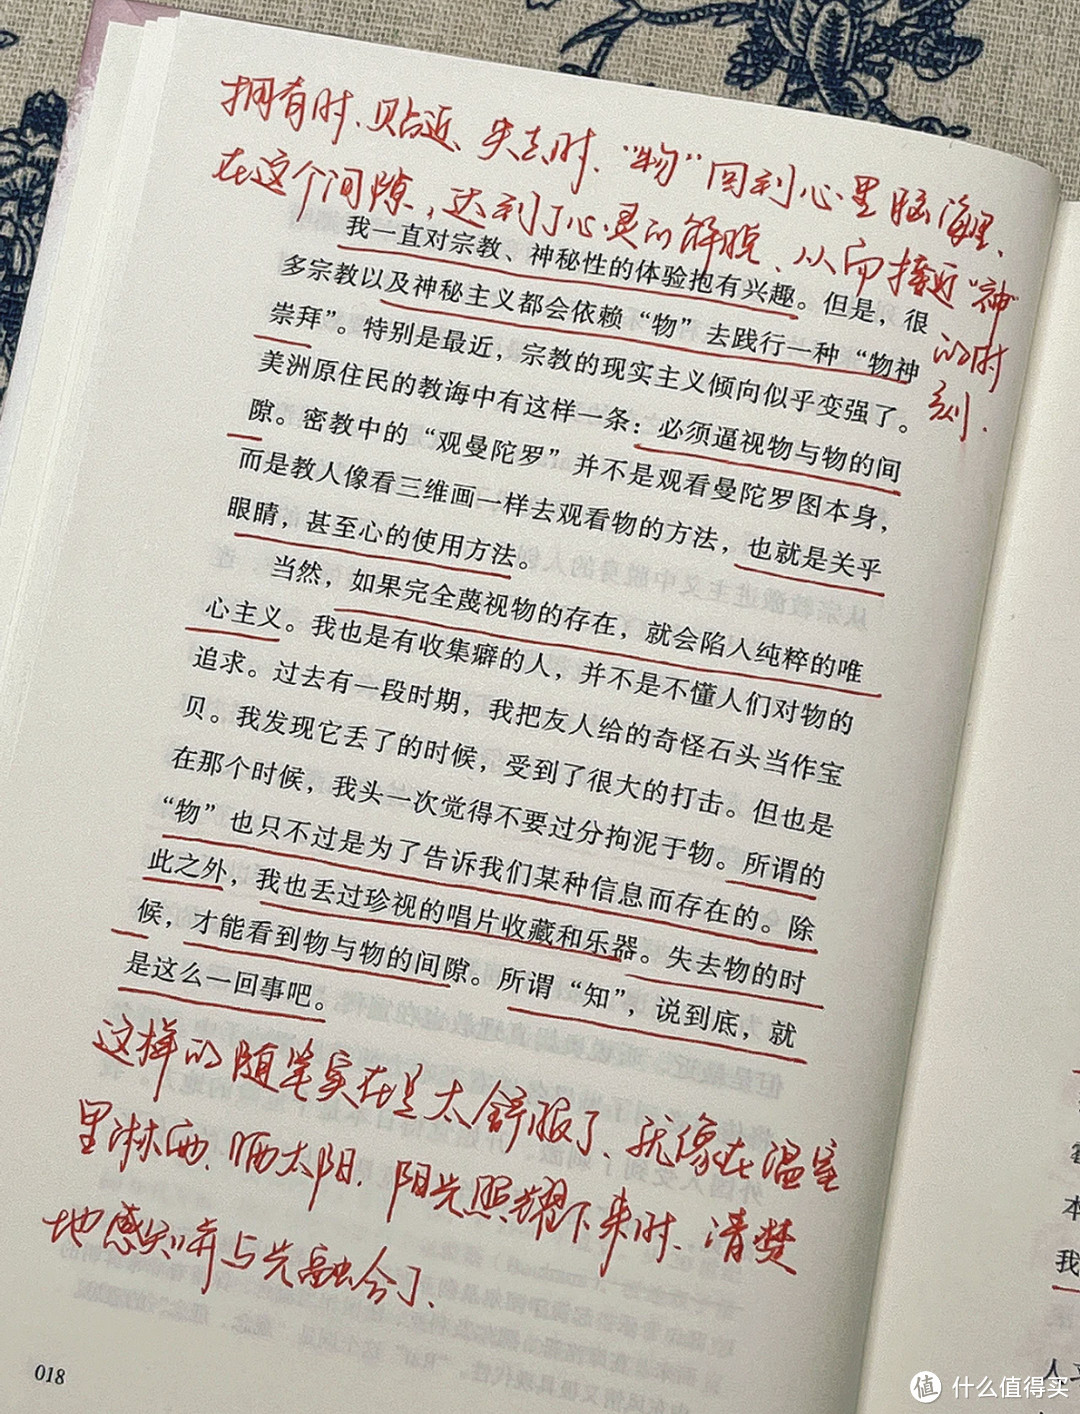 拥有时、贴近、失去时、“物”回到心里脑海里、
在这个间隙，达到了心灵的解脱、从而接近“神”
的时
刻.
我一直对宗教、神秘性的体验抱有兴趣。但是，很
多宗教以及神秘主义都会依赖“物”去践行一种“物神
崇拜”。特别是最近，宗教的现实主义倾向似乎变强了。
美洲原住民的教诲中有这样一条：必须逼视物与物的间
隙。密教中的“观曼陀罗”并不是观看曼陀罗图本身，
而是教人像看三维画一样去观看物的方法，也就是关乎
眼睛，甚至心的使用方法。
当然，如果完全蔑视物的存在，就会陷入纯粹的唯
心主义。我也是有收集癖的人，并不是不懂人们对物的
追求。过去有一段时期，我把友人给的奇怪石头当作宝
贝。我发现它丢了的时候，受到了很大的打击。但也是
在那个时候，我头一次觉得不要过分拘泥于物。所谓的
“物”也只不过是为了告诉我们某种信息而存在的。除
此之外，我也丢过珍视的唱片收藏和乐器。失去物的时
候，才能看到物与物的间隙。所谓“知”，说到底，就
是这么一回事吧。
这样的随笔实在是太舒服了、就像在温室
里淋雨、晒太阳.阳光照耀下来时、清楚
地感知并与光融合了、
018
本
我
人
值 什么值得买